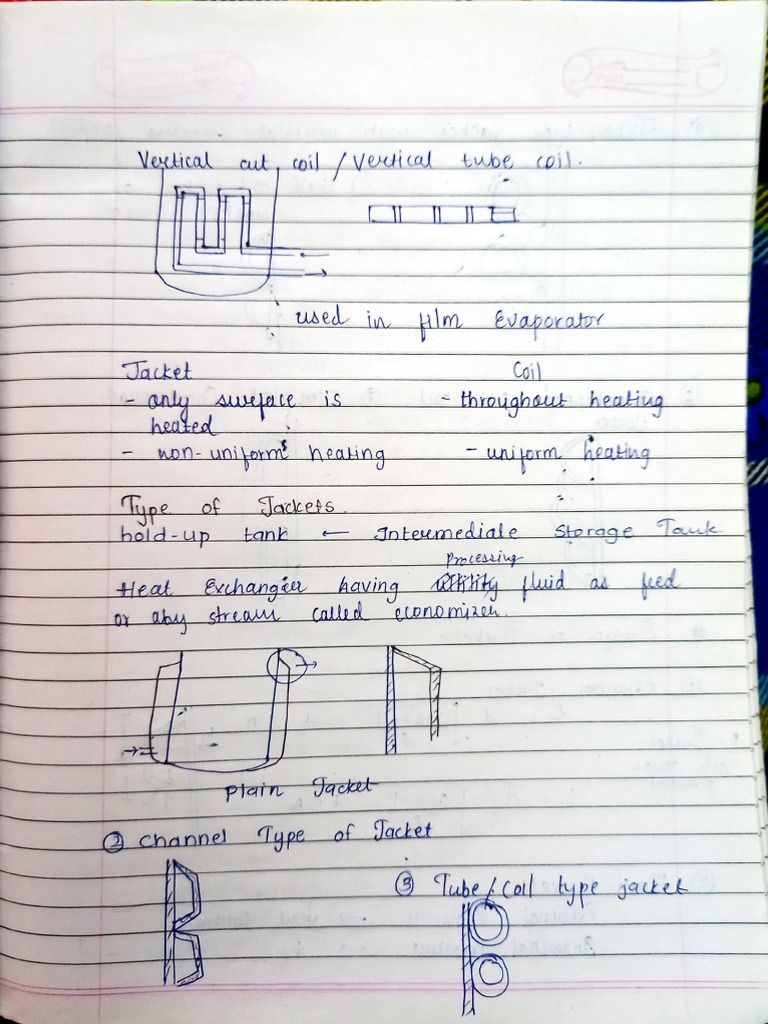 Vertical cut coil / Vertical tube coil.
used in film Evaporator
Jacket Coil
- only surface is - throughout heating
heated
- non-uniform heating - uniform heating
Type of Jackets.
hold-up tank ← Intermediate Storage Tank
processing
Heat Exchanger having fluid as feed
or any stream called economizer.
Plain Jacket
② Channel Type of Jacket
③ Tube/Coil type jacket